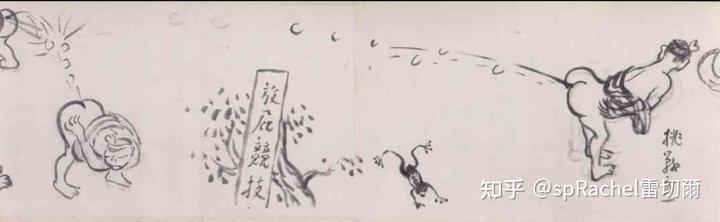 挑戰
放屁競技
知乎 @spRachel雷切爾